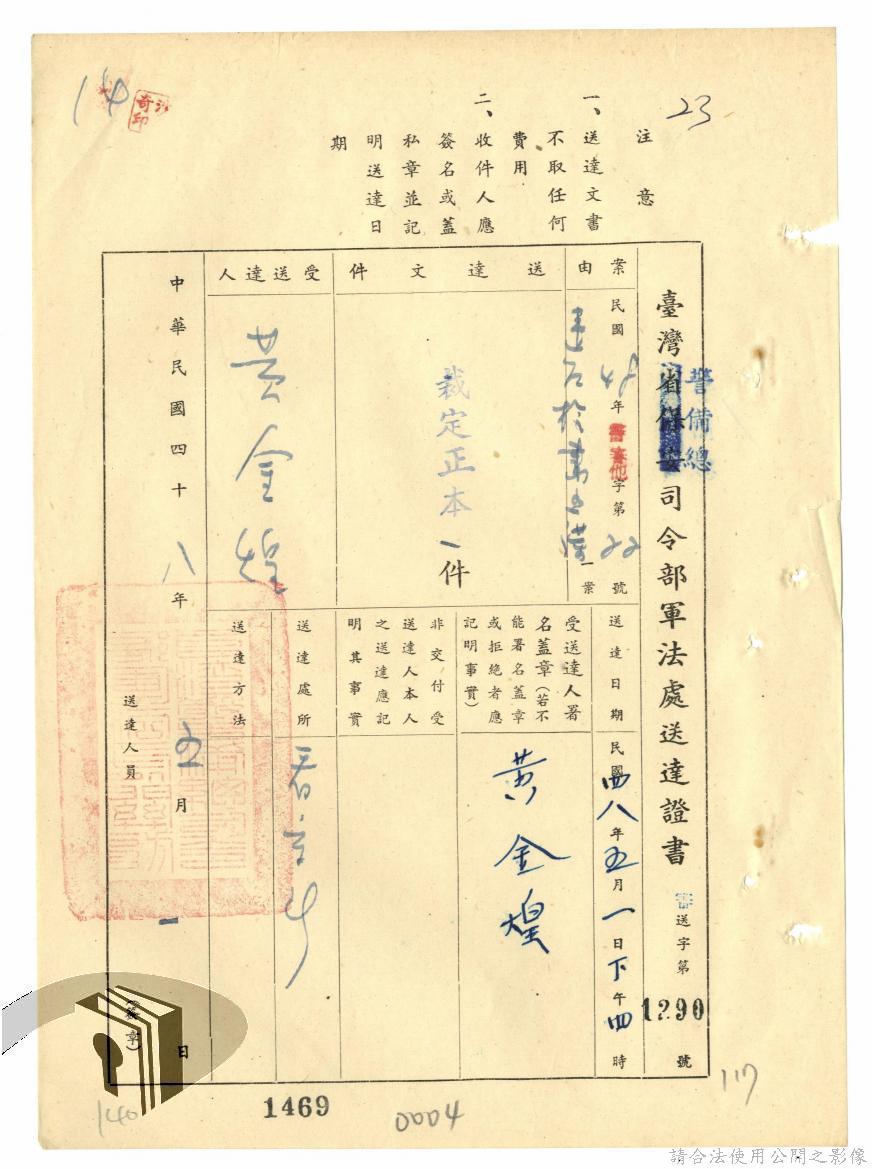 23
注意
一、送達文書
不取任何
費用
二、收件人應
簽名或蓋
私章並記
明送達日
期
臺灣省保安司令部軍法處送達證書
警備總
審送字第1290號
案由
民國48年警審他字第22號
一案
送達文件
裁定正本一件
受送達人
黃金煌
送達日期
民國四八年五月一日下午四時
受送達人署
名蓋章(若不
能署名蓋章
或拒絕者應
記明事實)
黃金煌
非交付受
送達人本人
之送達應記
明其事實
送達處所
送達方法
中華民國四十八年五月一日
送達人員
(簽章)
1469
0004
117
140
請合法使用公開之影像